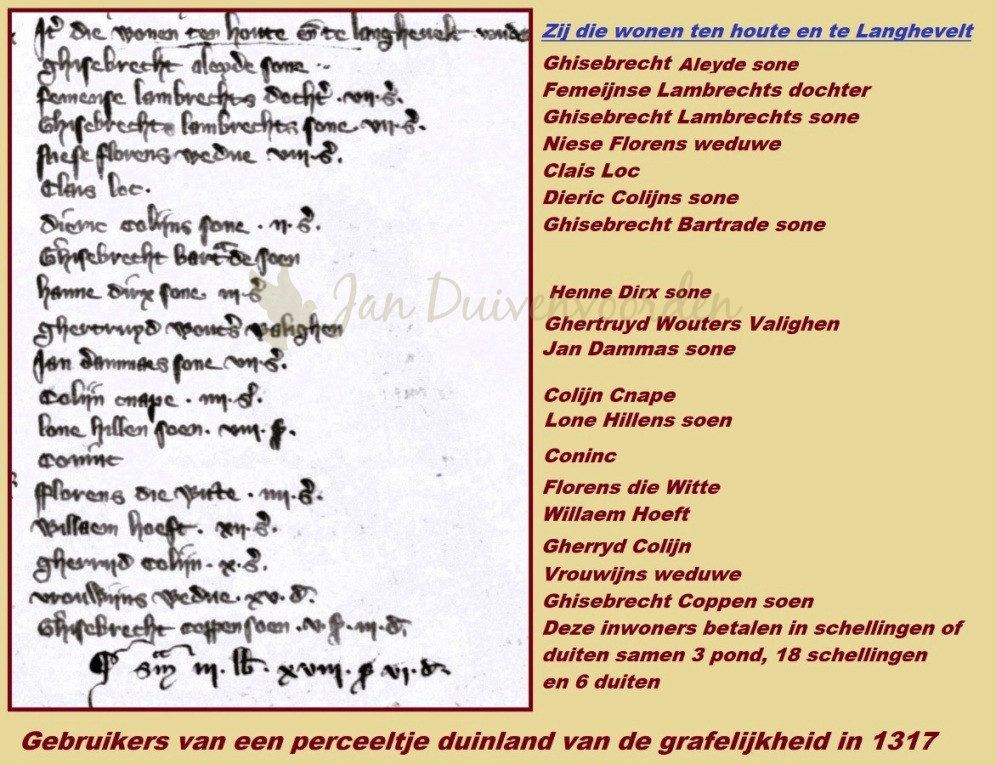 It̄ die wonen ten houte en̄ te langhevelt
ghisebrecht aleyde sone
femense lambrechts docht̄ · vii · s̄.
Ghisebrecht lambrechts sone vii · s̄.
niese florens wedue viii · s̄.
Clais loc.
dieric colijns sone · ii · s̄.
Ghisebrecht bartᵃde soen
hanne dirx sone iii · s̄
ghertruyd wout̄s valighen
Jan dammaes sone vii · s̄.
Colijn cnape · iii · s̄.
lone hillen soen · viii · s̄.
Coninc
fflorens die witte · iiii · s̄.
willaem hoeft · xii · s̄.
gherrijd colijn · x · s̄.
vrouwijns wedue · xv · d̄.
Ghisebrecht coppen soen · v · s̄ · iii · d̄.
sm̄ᵃ iii · lb̄ · xviii · s̄ vi · d̄.
Zij die wonen ten houte en te Langhevelt
Ghisebrecht Aleyde sone
Femeijnse Lambrechts dochter
Ghisebrecht Lambrechts sone
Niese Florens weduwe
Clais Loc
Dieric Colijns sone
Ghisebrecht Bartrade sone
Henne Dirx sone
Ghertruyd Wouters Valighen
Jan Dammas sone
Colijn Cnape
Lone Hillens soen
Coninc
Florens die Witte
Willaem Hoeft
Gherryd Colijn
Vrouwijns weduwe
Ghisebrecht Coppen soen
Deze inwoners betalen in schellingen of
duiten samen 3 pond, 18 schellingen
en 6 duiten
Jan Duivenvoorden
Gebruikers van een perceeltje duinland van de grafelijkheid in 1317